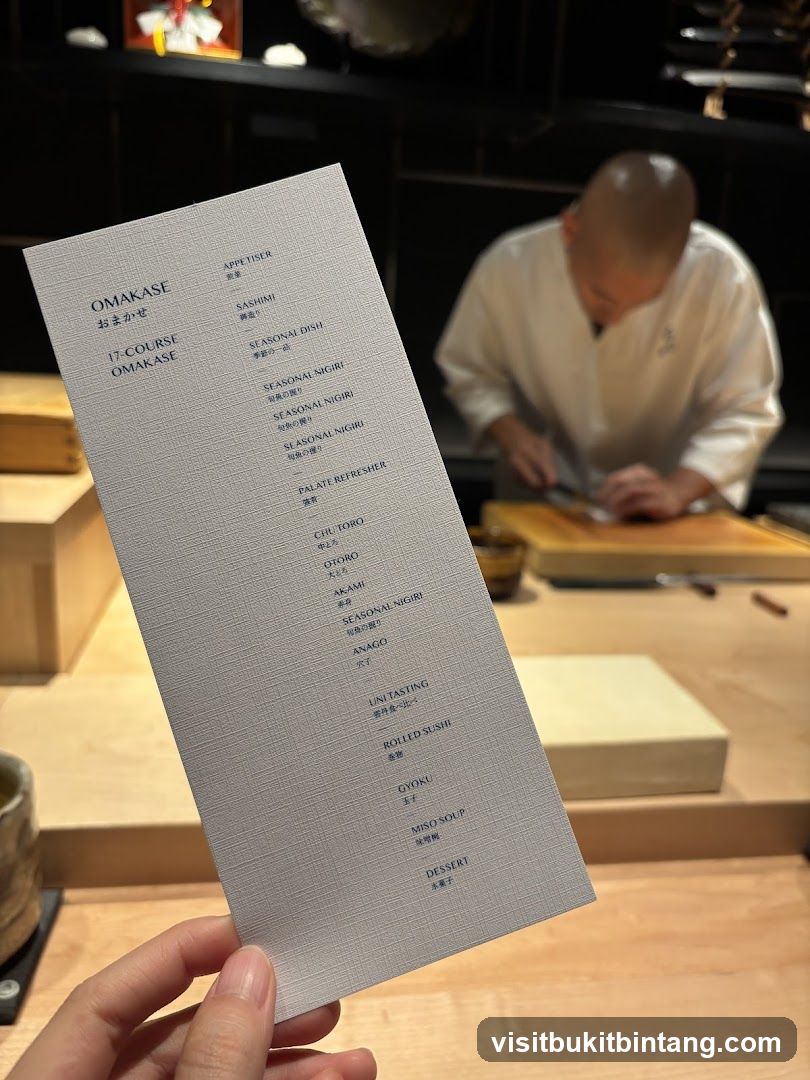 OMAKASE
おまかせ
17-COURSE
OMAKASE
APPETISER
SASHIMI
御造り
SEASONAL DISH
季節の一品
SEASONAL NIGIRI
旬魚の握り
SEASONAL NIGIRI
旬魚の握り
SEASONAL NIGIRI
旬魚の握り
PALATE REFRESHER
CHU TORO
中とろ
OTORO
大とろ
AKAMI
赤身
SEASONAL NIGIRI
旬魚の握り
ANAGO
穴子
UNI TASTING
雲丹食べ比べ
ROLLED SUSHI
巻物
GYOKU
玉子
MISO SOUP
味噌椀
DESSERT
水菓子
visitbukitbintang.com